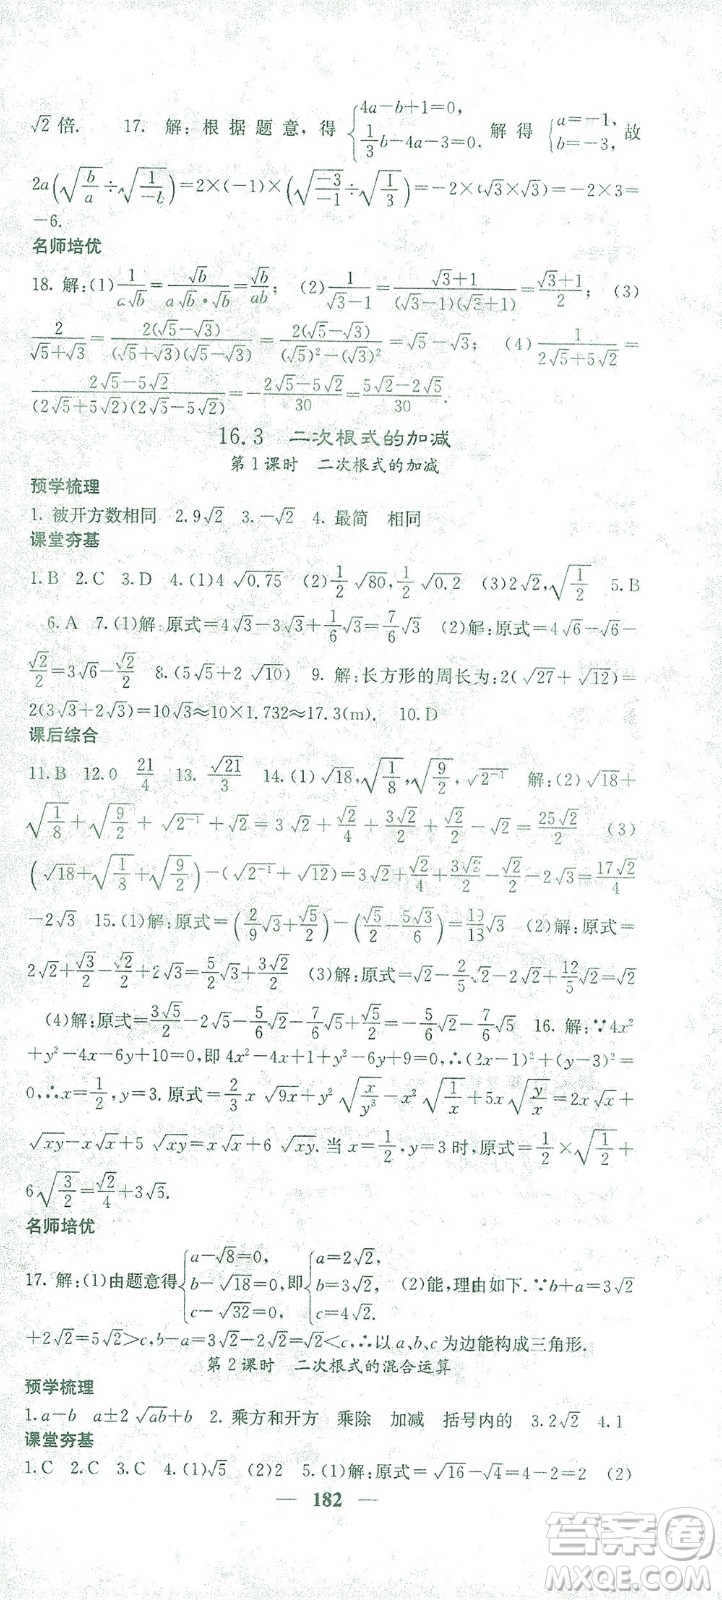 √2 倍. 17. 解:根据题意,得{4a-b+1=0, 1/3 b-4a-3=0, 解得{a=-1, b=-3, 故
2a(√(b/a)÷√(1/-b))=2×(-1)×(√(-3/-1)÷√(1/3))=-2×(√3×√3)=-2×3=
-6.
名师培优
18. 解:(1) 1/(a√b)=√b/(a√b·√b)=√b/(ab); (2) 1/(√3-1)=(√3+1)/((√3-1)(√3+1))=(√3+1)/2; (3)
2/(√5+√3)=2(√5-√3)/((√5+√3)(√5-√3))=2(√5-√3)/((√5)²-(√3)²)=√5-√3; (4) 1/(2√5+5√2)=
(2√5-5√2)/((2√5+5√2)(2√5-5√2))=(2√5-5√2)/-30=(5√2-2√5)/30.
16.3 二次根式的加减
第1课时 二次根式的加减
预学梳理
1. 被开方数相同 2. 9√2 3. -√2 4. 最简 相同
课堂夯基
1. B 2. C 3. D 4. (1) 4√0.75 (2) 1/2√80, 1/2√0.2 (3) 2√2, √(1/2) 5. B
6. A 7. (1)解:原式=4√3-3√3+1/6√3=7/6√3 (2)解:原式=4√6-√6-
√2/2=3√6-√2/2 8. (5√5+2√10) 9. 解:长方形的周长为:2(√27+√12)=
2(3√3+2√3)=10√3≈10×1.732≈17.3(m). 10. D
课后综合
11. B 12. 0 21/4 13. √21/3 14. (1)√18, √(1/8), √(9/2), √2⁻¹ 解:(2)√18+
√(1/8)+√(9/2)+√2⁻¹+√2=3√2+√2/4+3√2/2+√2/2+√2=25√2/4 (3)
(√18+√(1/8)+√(9/2))-(√2⁻¹+√12)=3√2+√2/4+3√2/2-√2/2-2√3=17√2/4
-2√3 15. (1)解:原式=(2/9√3+√5/2)-(√5/2-5√3/6)=19/18√3 (2)解:原式=
2√2+√3/2-√2/2+2√3=5/2√3+3√2/2 (3)解:原式=√2-2/5√5-2√2+12/5√5=√2
(4)解:原式=3√5/2-2√5-5/6√2-2/3√5=-5/6√2-7/6√5 16. 解:∵4x²
+y²-4x-6y+10=0,即4x²-4x+1+y²-6y+9=0,∴(2x-1)²+(y-3)²=
0,∴x=1/2,y=3. 原式=2/3x√9x+y²√(x/y³)-x²√(1/x)+5x√(y/x)=2x√x+
√xy-x√x+5√xy=x√x+6√xy. 当x=1/2,y=3时,原式=1/2×√(1/2)+
6√(3/2)=√2/4+3√6.
名师培优
17. 解:(1)由题意得{a-√8=0, b-√18=0, c-√32=0, 即{a=2√2, b=3√2, c=4√2. (2)能,理由如下. ∵b+a=3√2
+2√2=5√2>c,b-a=3√2-2√2=√2<c,∴以a、b、c为边能构成三角形.
第2课时 二次根式的混合运算
预学梳理
1. a-b a±2√ab+b 2. 乘方和开方 乘除 加减 括号内的 3. 2√2 4. 1
课堂夯基
1. C 2. C 3. C 4. (1)√5 (2)2 5. (1)解:原式=√16-√4=4-2=2 (2)
— 182 —
答案圈
MXQE.COM